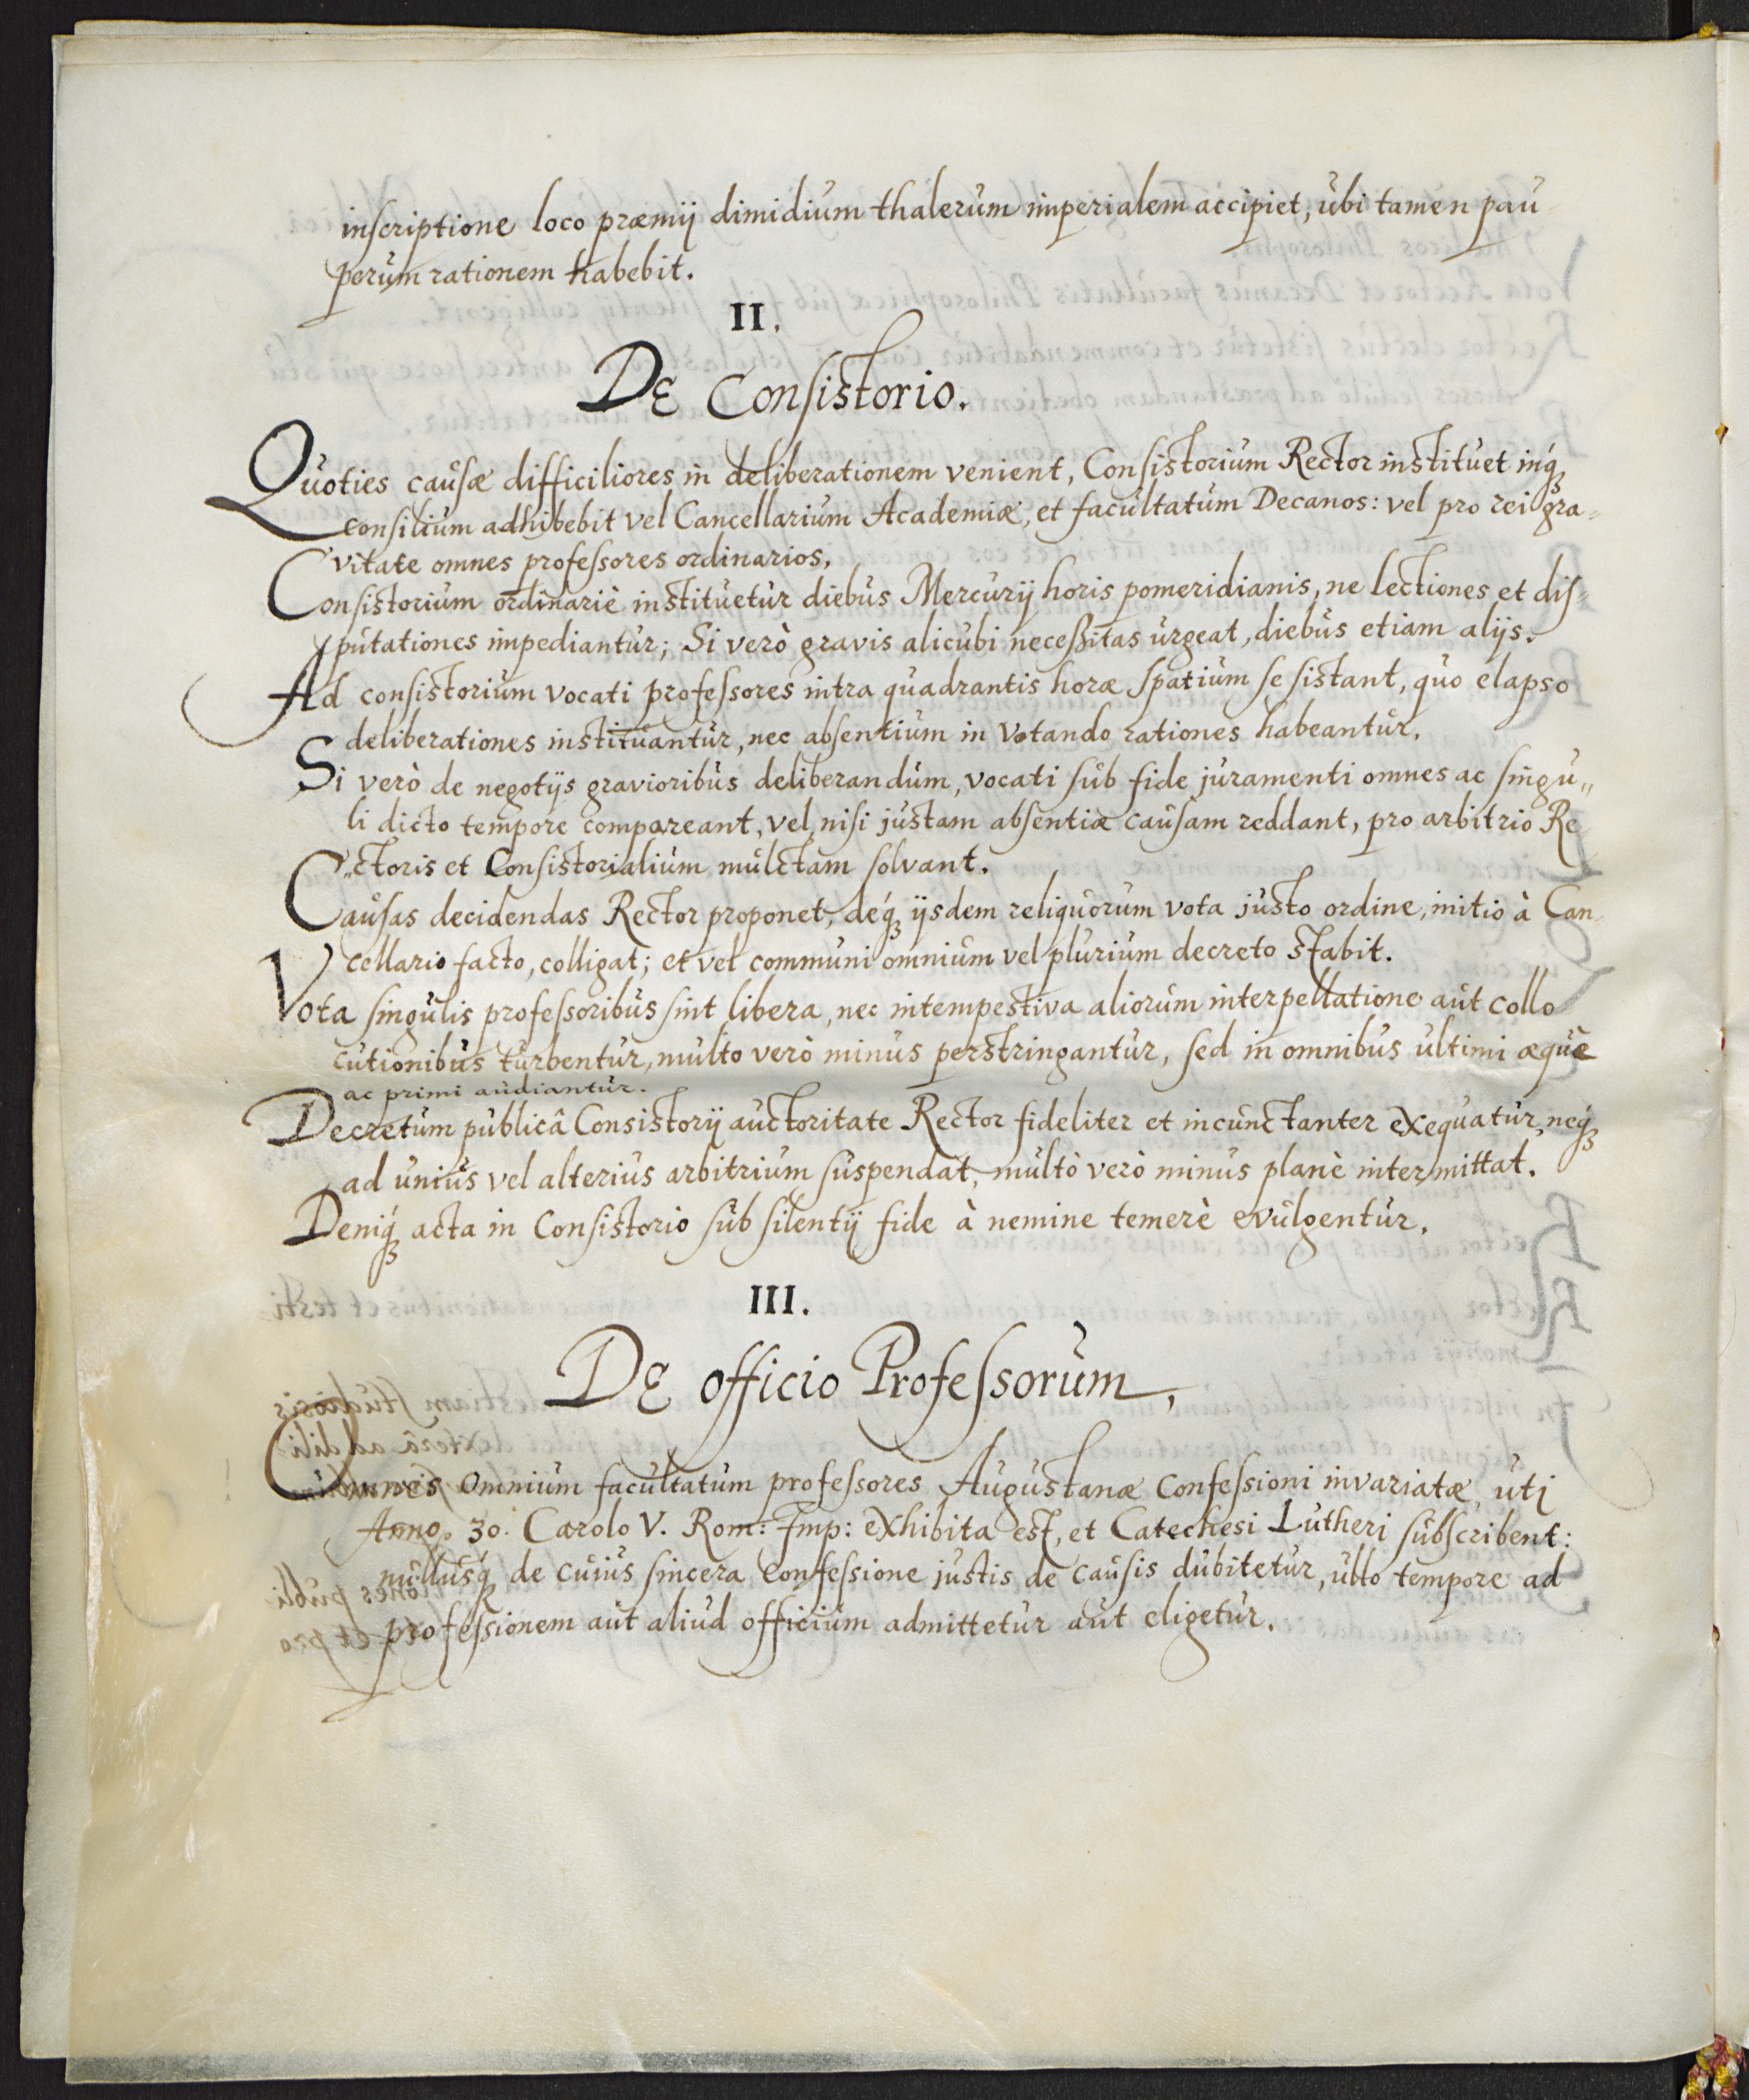 inscriptione loco præmij dimidium thalerum imperialem accipiet, ubi tamen pau
perum rationem habebit.
II.
De Consistorio.
Quoties causæ difficiliores in deliberationem venient, Consistorium Rector instituet inq́ꝫ
consilium adhibebit vel Cancellarium Academiæ, et facultatum Decanos: vel pro rei gra=
vitate omnes professores ordinarios.
Consistorium ordinariè instituetur diebus Mercurij horis pomeridianis, ne lectiones et dis=
putationes impediantur; Si verò gravis alicubi necessitas urgeat, diebus etiam alijs.
Ad consistorium vocati professores intra quadrantis horæ spatium se sistant, quo elapso
deliberationes instituantur, nec absentium in votando rationes habeantur.
Si verò de negotijs gravioribus deliberandum, vocati sub fide juramenti omnes ac singu„
li dicto tempore compareant, vel, nisi justam absentiæ causam reddant, pro arbitrio Re
„ctoris et Consistorialium mulctam solvant.
Causas decidendas Rector proponet, deq́ꝫ ijsdem reliquorum vota justo ordine, initio à Can=
cellario facto, colligat; et vel communi omnium vel plurium decreto stabit.
Vota singulis professoribus sint libera, nec intempestiva aliorum interpellatione aut collo
cutionibus turbentur, multo verò minus perstringantur, sed in omnibus ultimi æquè
ac primi audiantur.
Decretum publicâ Consistorij auctoritate Rector fideliter et incunctanter exequatur, neq́ꝫ
ad unius vel alterius arbitrium suspendat, multò verò minus planè intermittat.
Deniq́ꝫ acta in Consistorio sub silentij fide à nemine temerè evulgentur.
III.
De officio Professorum.
Omnes omnium facultatum professores Augustanæ Confessioni invariatæ, uti
Anno. 30. Carolo V. Rom: Imp: exhibita est, et Catechesi Lutheri subscribent:
nullusq́ꝫ de cuius sincera Confessione justis de causis dubitetur, ullo tempore ad
professionem aut aliud officium admittetur aut eligetur.